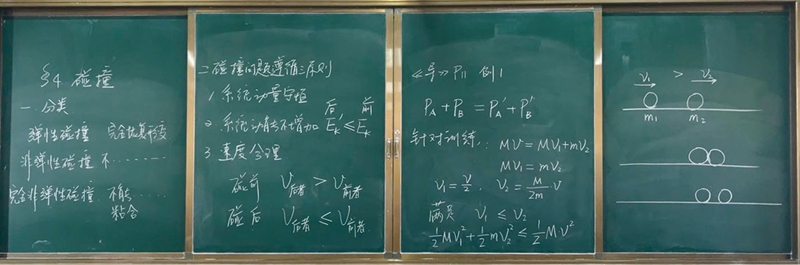 §4 碰撞
一. 分类
弹性碰撞 完全恢复形变
非弹性碰撞 不……
完全非弹性碰撞 不能……
粘合
二. 碰撞问题遵循三原则
1. 系统动量守恒
后 前
2. 系统动能不增加 Eₖ' ≤ Eₖ
3. 速度合理
碰前 V后者 > V前者
碰后 V后者 ≤ V前者
《导》P11 例1
P_A + P_B = P_A' + P_B'
针对训练: MV = MV₁ + mV₂
MV₁ = mV₂
V₁ = V/2 . V₂ = M/2m V
满足 V₁ ≤ V₂
½MV₁² + ½mV₂² ≤ ½MV²
V₁ > V₂
m₁ m₂